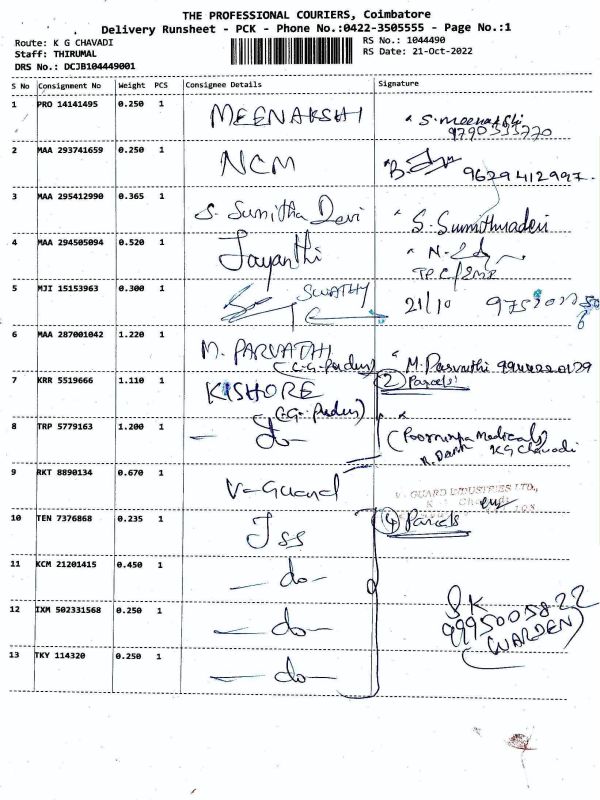 THE PROFESSIONAL COURIERS, Coimbatore
Delivery Runsheet - PCK - Phone No.:0422-3505555 - Page No.:1
Route: K G CHAVADI
RS No.: 1044490
Staff: THIRUMAL
RS Date: 21-Oct-2022
DRS No.: DCJB104449001
S No Consignment No Weight PCS Consignee Details Signature
1 PRO 14141495 0.250 1 MEENAKSHI S. meenakshi
2 MAA 293741659 0.250 1 NCM 9629412997
3 MAA 295412990 0.365 1 S. Sumitha Devi S. Sumithradevi
4 MAA 294505094 0.520 1 Jayanthi
5 MJI 15153963 0.300 1 SWATHY 21/10
6 MAA 287001042 1.220 1 M. PARVATHI M. Parvathi
7 KRR 5519666 1.110 1 KISHORE 2 Parcels
8 TRP 5779163 1.200 1 - do - (Poornima Medicals)
KG Chavadi
9 RKT 8890134 0.670 1 V-Guard V-GUARD INDUSTRIES LTD.,
10 TEN 7376868 0.235 1 Jss 4 Parcels
11 KCM 21201415 0.450 1 - do -
12 IXM 502331568 0.250 1 - do - SK
9995005822
(WARDEN)
13 TKY 114320 0.250 1 - do -